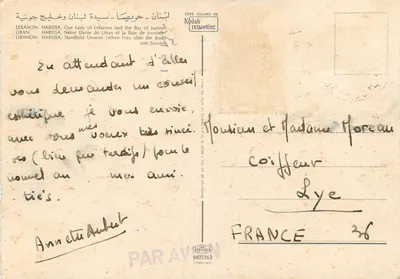 لبنان - حريصا - سيدة لبنان وخليج جونية
LEBANON: HARISSA, Our Lady of Lebanon and the Bay of Jounieh
LIBAN: HARISSA, Notre Dame du Liban et la Baie de Jounieh
LIBANON: HARISSA, Standbild Unserer Lieben Frau über der Bucht
von Jounieh
Kodak
EKTACHROME
En attendant d'aller
vous demander un conseil
esthétique je vous envoie,
avec tous mes voeux très sincè
res (bien que tardifs) pour le
nouvel an mes ami
tiés.
Annette Aubert
Monsieur et Madame Moreau
Coiffeur
Lye
FRANCE 36
PAR AVION